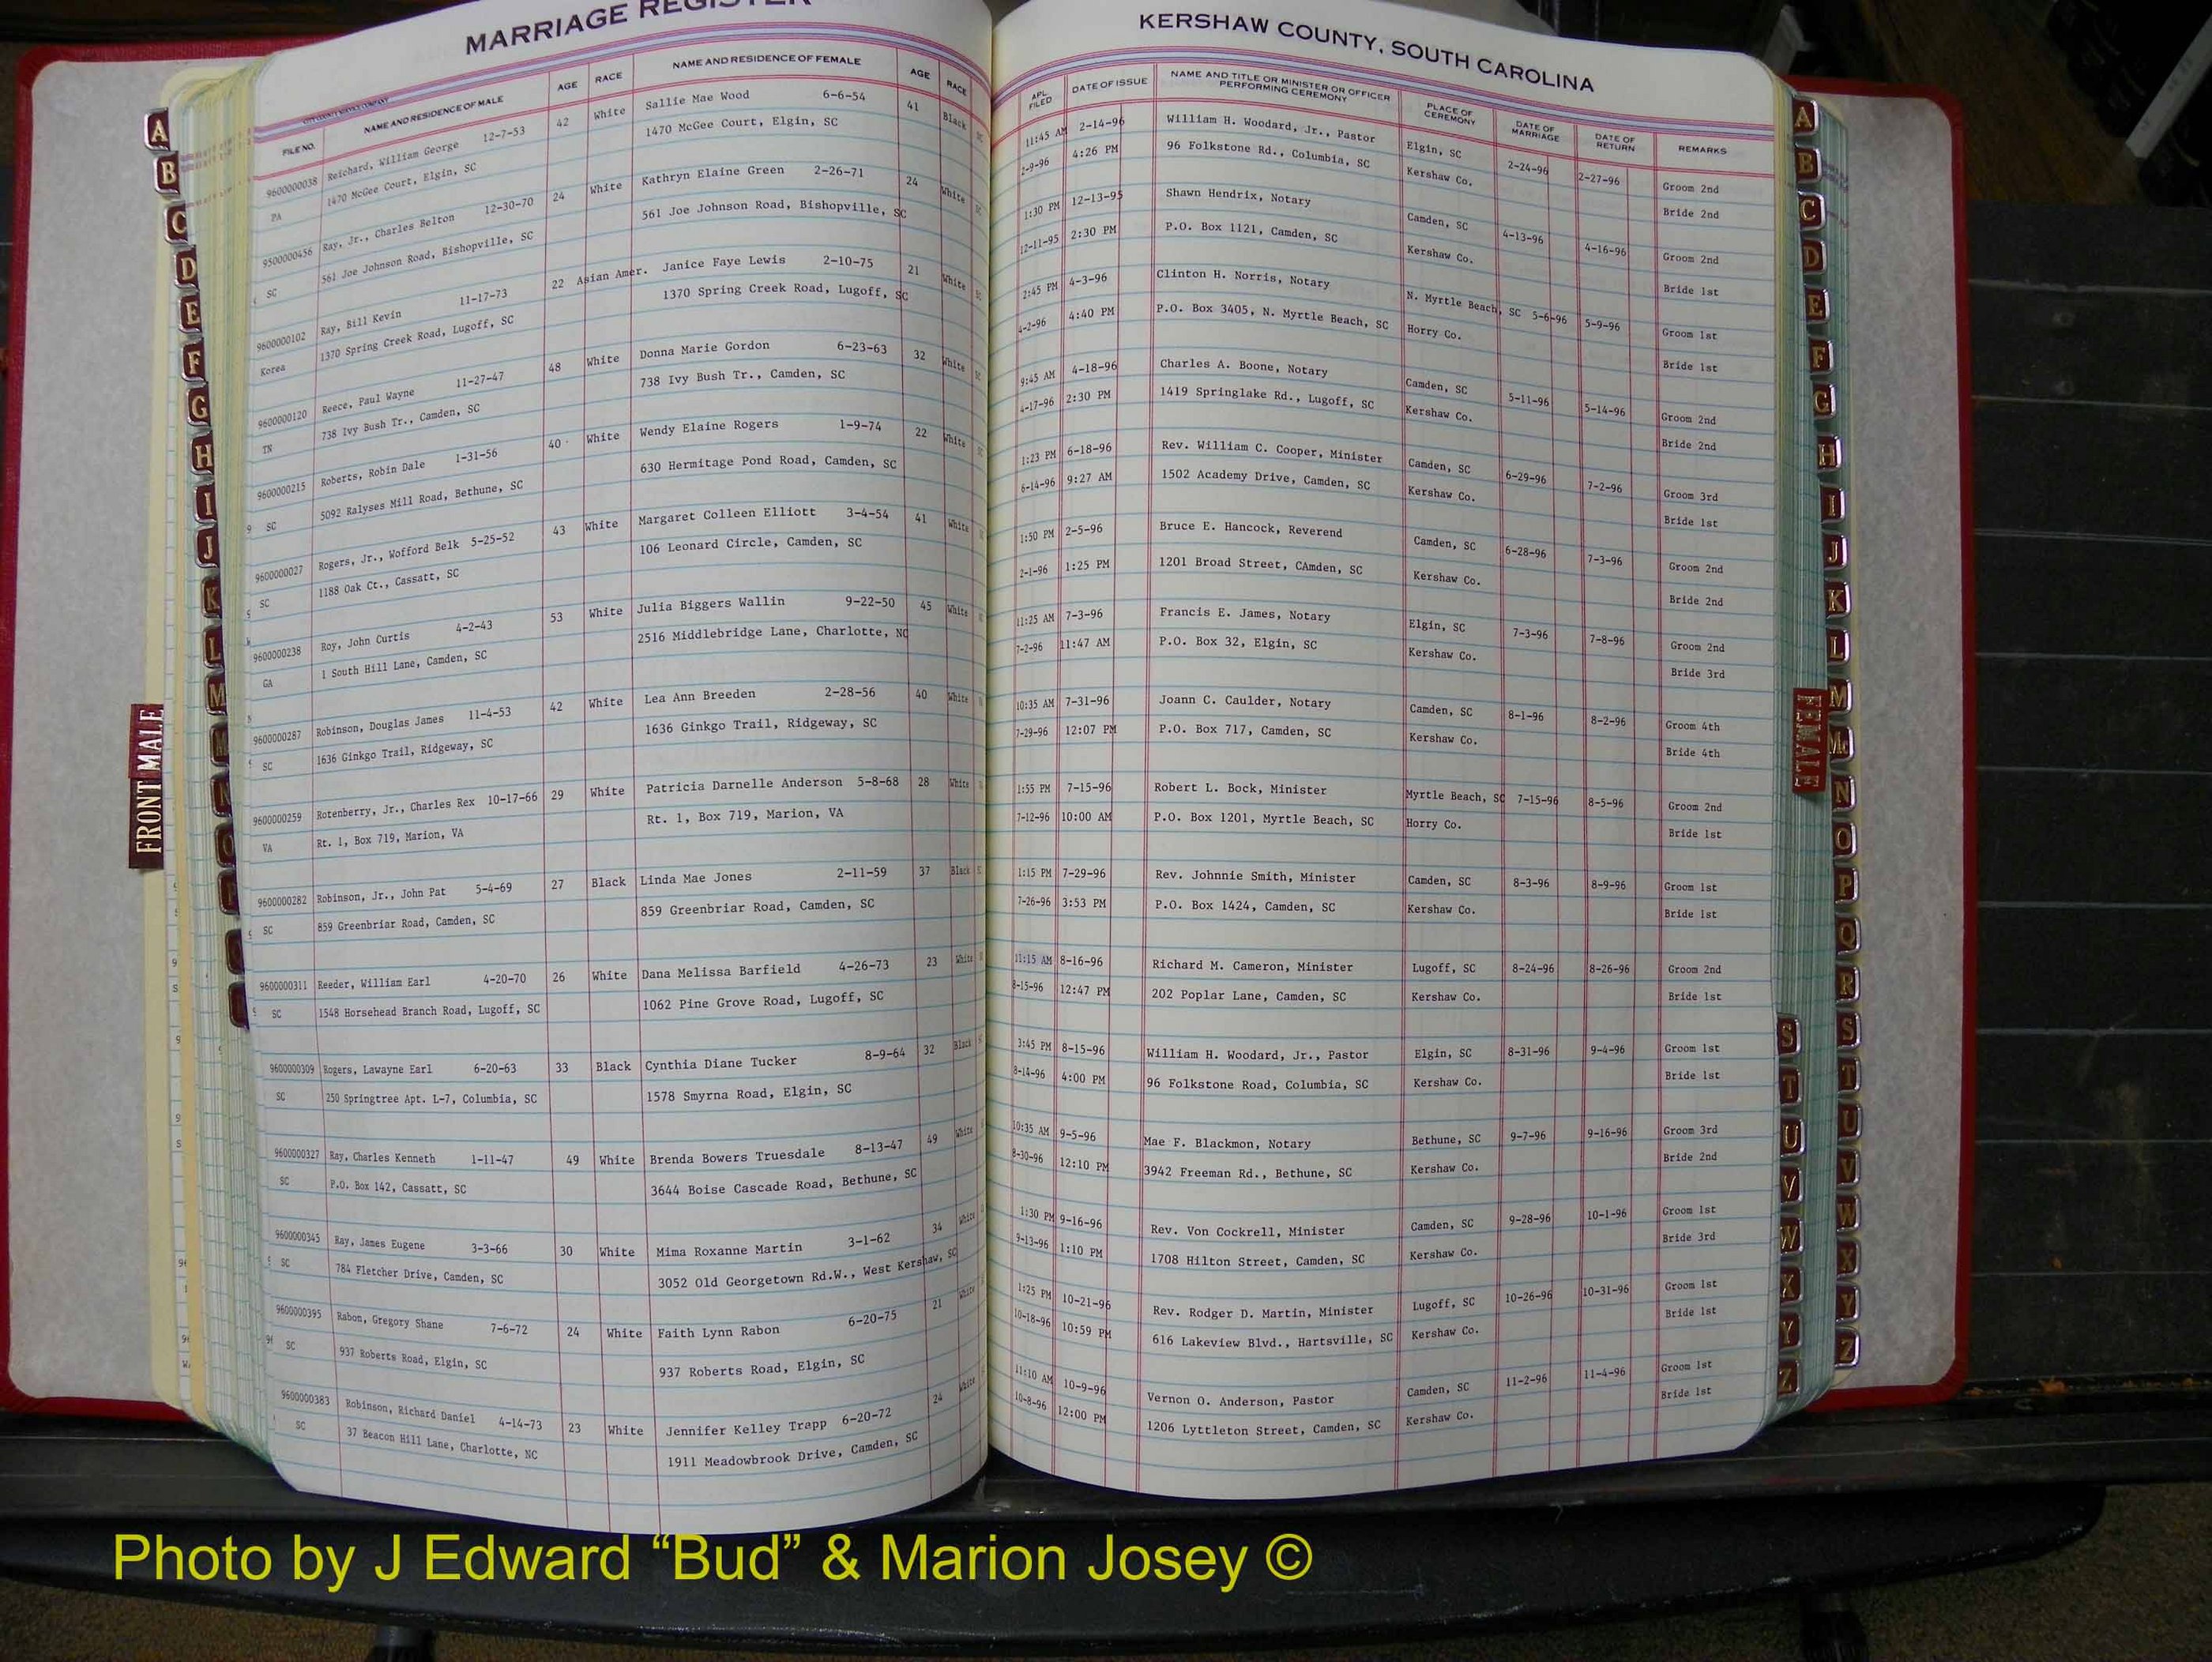 MARRIAGE REGISTER
FILE NO. NAME AND RESIDENCE OF MALE AGE RACE NAME AND RESIDENCE OF FEMALE AGE RACE
9600000038 Reichard, William George 12-7-53 42 White Sallie Mae Wood 6-6-54 41 Black
PA 1470 McGee Court, Elgin, SC 1470 McGee Court, Elgin, SC
9500000456 Ray, Jr., Charles Belton 12-30-70 24 White Kathryn Elaine Green 2-26-71 24 White
SC 561 Joe Johnson Road, Bishopville, SC 561 Joe Johnson Road, Bishopville, SC
9600000102 Ray, Bill Kevin 11-17-73 22 Asian Amer. Janice Faye Lewis 2-10-75 21 White
Korea 1370 Spring Creek Road, Lugoff, SC 1370 Spring Creek Road, Lugoff, SC
9600000120 Reece, Paul Wayne 11-27-47 48 White Donna Marie Gordon 6-23-63 32 White
TN 738 Ivy Bush Tr., Camden, SC 738 Ivy Bush Tr., Camden, SC
9600000215 Roberts, Robin Dale 1-31-56 40 White Wendy Elaine Rogers 1-9-74 22 White
SC 5092 Ralyses Mill Road, Bethune, SC 630 Hermitage Pond Road, Camden, SC
9600000027 Rogers, Jr., Wofford Belk 5-25-52 43 White Margaret Colleen Elliott 3-4-54 41 White
SC 1188 Oak Ct., Cassatt, SC 106 Leonard Circle, Camden, SC
9600000238 Roy, John Curtis 4-2-43 53 White Julia Biggers Wallin 9-22-50 45 White
GA 1 South Hill Lane, Camden, SC 2516 Middlebridge Lane, Charlotte, NC
9600000287 Robinson, Douglas James 11-4-53 42 White Lea Ann Breeden 2-28-56 40 White
SC 1636 Ginkgo Trail, Ridgeway, SC 1636 Ginkgo Trail, Ridgeway, SC
9600000259 Rotenberry, Jr., Charles Rex 10-17-66 29 White Patricia Darnelle Anderson 5-8-68 28 White
VA Rt. 1, Box 719, Marion, VA Rt. 1, Box 719, Marion, VA
9600000282 Robinson, Jr., John Pat 5-4-69 27 Black Linda Mae Jones 2-11-59 37 Black
SC 859 Greenbriar Road, Camden, SC 859 Greenbriar Road, Camden, SC
9600000311 Reeder, William Earl 4-20-70 26 White Dana Melissa Barfield 4-26-73 23 White
SC 1548 Horsehead Branch Road, Lugoff, SC 1062 Pine Grove Road, Lugoff, SC
9600000309 Rogers, Lawayne Earl 6-20-63 33 Black Cynthia Diane Tucker 8-9-64 32 Black
SC 250 Springtree Apt. L-7, Columbia, SC 1578 Smyrna Road, Elgin, SC
9600000327 Ray, Charles Kenneth 1-11-47 49 White Brenda Bowers Truesdale 8-13-47 49 White
SC P.O. Box 142, Cassatt, SC 3644 Boise Cascade Road, Bethune, SC
9600000345 Ray, James Eugene 3-3-66 30 White Mima Roxanne Martin 3-1-62 34 White
SC 784 Fletcher Drive, Camden, SC 3052 Old Georgetown Rd.W., West Kershaw, SC
9600000395 Rabon, Gregory Shane 7-6-72 24 White Faith Lynn Rabon 6-20-75 21 White
SC 937 Roberts Road, Elgin, SC 937 Roberts Road, Elgin, SC
9600000383 Robinson, Richard Daniel 4-14-73 23 White Jennifer Kelley Trapp 6-20-72 24 White
SC 37 Beacon Hill Lane, Charlotte, NC 1911 Meadowbrook Drive, Camden, SC
KERSHAW COUNTY, SOUTH CAROLINA
APL. FILED DATE OF ISSUE NAME AND TITLE OR MINISTER OR OFFICER PERFORMING CEREMONY PLACE OF CEREMONY DATE OF MARRIAGE DATE OF RETURN REMARKS
11:45 AM 2-14-96 William H. Woodard, Jr., Pastor Elgin, SC 2-24-96 2-27-96 Groom 2nd
2-9-96 4:26 PM 96 Folkstone Rd., Columbia, SC Kershaw Co. Bride 2nd
1:30 PM 12-13-95 Shawn Hendrix, Notary Camden, SC 4-13-96 4-16-96 Groom 2nd
12-11-95 2:30 PM P.O. Box 1121, Camden, SC Kershaw Co. Bride 1st
2:45 PM 4-3-96 Clinton H. Norris, Notary N. Myrtle Beach, SC 5-6-96 5-9-96 Groom 1st
4-2-96 4:40 PM P.O. Box 3405, N. Myrtle Beach, SC Horry Co. Bride 1st
9:45 AM 4-18-96 Charles A. Boone, Notary Camden, SC 5-11-96 5-14-96 Groom 2nd
4-17-96 2:30 PM 1419 Springlake Rd., Lugoff, SC Kershaw Co. Bride 2nd
1:23 PM 6-18-96 Rev. William C. Cooper, Minister Camden, SC 6-29-96 7-2-96 Groom 3rd
6-14-96 9:27 AM 1502 Academy Drive, Camden, SC Kershaw Co. Bride 1st
1:50 PM 2-5-96 Bruce E. Hancock, Reverend Camden, SC 6-28-96 7-3-96 Groom 2nd
2-1-96 1:25 PM 1201 Broad Street, CAmden, SC Kershaw Co. Bride 2nd
11:25 AM 7-3-96 Francis E. James, Notary Elgin, SC 7-3-96 7-8-96 Groom 2nd
7-2-96 11:47 AM P.O. Box 32, Elgin, SC Kershaw Co. Bride 3rd
10:35 AM 7-31-96 Joann C. Caulder, Notary Camden, SC 8-1-96 8-2-96 Groom 4th
7-29-96 12:07 PM P.O. Box 717, Camden, SC Kershaw Co. Bride 4th
1:55 PM 7-15-96 Robert L. Bock, Minister Myrtle Beach, SC 7-15-96 8-5-96 Groom 2nd
7-12-96 10:00 AM P.O. Box 1201, Myrtle Beach, SC Horry Co. Bride 1st
1:15 PM 7-29-96 Rev. Johnnie Smith, Minister Camden, SC 8-3-96 8-9-96 Groom 1st
7-26-96 3:53 PM P.O. Box 1424, Camden, SC Kershaw Co. Bride 1st
11:15 AM 8-16-96 Richard M. Cameron, Minister Lugoff, SC 8-24-96 8-26-96 Groom 2nd
8-15-96 12:47 PM 202 Poplar Lane, Camden, SC Kershaw Co. Bride 1st
3:45 PM 8-15-96 William H. Woodard, Jr., Pastor Elgin, SC 8-31-96 9-4-96 Groom 1st
8-14-96 4:00 PM 96 Folkstone Road, Columbia, SC Kershaw Co. Bride 1st
10:35 AM 9-5-96 Mae F. Blackmon, Notary Bethune, SC 9-7-96 9-16-96 Groom 3rd
8-30-96 12:10 PM 3942 Freeman Rd., Bethune, SC Kershaw Co. Bride 2nd
1:30 PM 9-16-96 Rev. Von Cockrell, Minister Camden, SC 9-28-96 10-1-96 Groom 1st
9-13-96 1:10 PM 1708 Hilton Street, Camden, SC Kershaw Co. Bride 3rd
1:25 PM 10-21-96 Rev. Rodger D. Martin, Minister Lugoff, SC 10-26-96 10-31-96 Groom 1st
10-18-96 10:59 PM 616 Lakeview Blvd., Hartsville, SC Kershaw Co. Bride 1st
11:10 AM 10-9-96 Vernon O. Anderson, Pastor Camden, SC 11-2-96 11-4-96 Groom 1st
10-8-96 12:00 PM 1206 Lyttleton Street, Camden, SC Kershaw Co. Bride 1st
A
B
C
D
E
F
G
H
I
J
K
L
M
FRONT MALE
A
B
C
D
E
F
G
H
I
J
K
L
M
Mc
N
O
P
Q
R
S
T
U
V
W
X
Y
Z
FEMALE
S
T
U
V
W
X
Y
Z
Photo by J Edward “Bud” & Marion Josey ©